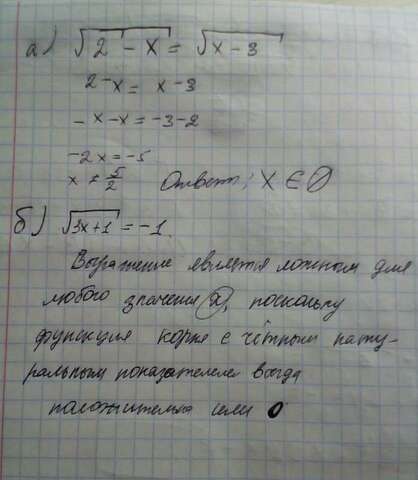 а) √2 - x = √x - 3
2 - x = x - 3
- x - x = -3 - 2
-2x = -5
x = 5/2 Ответ: x ∈ ∅
б) √3x+1 = -1.
Выражение является ложным для
любого значения x, поскольку
функция корня с чётным нату-
ральным показателем всегда
положительна или 0